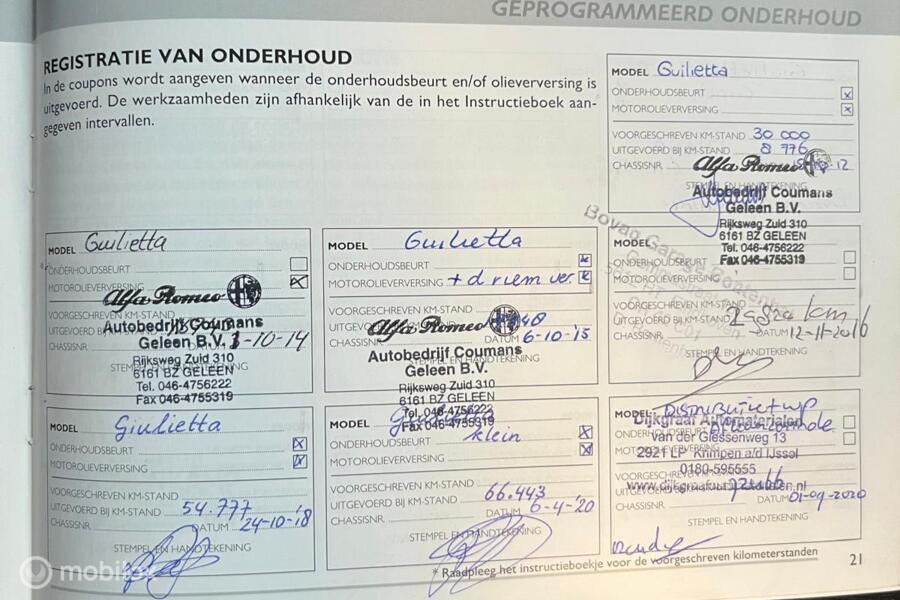 GEPROGRAMMEERD ONDERHOUD
REGISTRATIE VAN ONDERHOUD
In de coupons wordt aangeven wanneer de onderhoudsbeurt en/of olieverversing is
uitgevoerd. De werkzaamheden zijn afhankelijk van de in het Instructieboek aan-
gegeven intervallen.
MODEL Guilietta
ONDERHOUDSBEURT x
MOTOROLIEVERVERSING x
VOORGESCHREVEN KM-STAND 30 000
UITGEVOERD BIJ KM-STAND 8 776
CHASSISNR.
Alfa Romeo
STEMPEL EN HANDTEKENING
Autobedrijf Coumans
Geleen B.V.
Rijksweg Zuid 310
6161 BZ GELEEN
Tel. 046-4756222
Fax 046-4755319
MODEL Guilietta
ONDERHOUDSBEURT
MOTOROLIEVERVERSING x
Alfa Romeo
VOORGESCHREVEN KM-STAND
UITGEVOERD BIJ KM-STAND
Autobedrijf Coumans
CHASSISNR.
Geleen B.V. -10-14
Rijksweg Zuid 310
6161 BZ GELEEN
Tel. 046-4756222
Fax 046-4755319
MODEL Guilietta
ONDERHOUDSBEURT x
MOTOROLIEVERVERSING + d riem ver. x
VOORGESCHREVEN KM-STAND
Alfa Romeo
CHASSISNR. DATUM 6-10-15
Autobedrijf Coumans
Geleen B.V.
Rijksweg Zuid 310
6161 BZ GELEEN
Tel. 046-4756222
Fax 046-4755319
Bovan Garage
MODEL
ONDERHOUDSBEURT
MOTOROLIEVERVERSING
VOORGESCHREVEN KM-STAND
UITGEVOERD BIJ KM-STAND km
CHASSISNR. DATUM 12-11-2016
STEMPEL EN HANDTEKENING
MODEL Giulietta
ONDERHOUDSBEURT x
MOTOROLIEVERVERSING x
VOORGESCHREVEN KM-STAND
UITGEVOERD BIJ KM-STAND 54.777
CHASSISNR. DATUM 24-10-'18
STEMPEL EN HANDTEKENING
MODEL
ONDERHOUDSBEURT klein x
MOTOROLIEVERVERSING x
VOORGESCHREVEN KM-STAND
UITGEVOERD BIJ KM-STAND 66.443
CHASSISNR. DATUM 6-4-'20
STEMPEL EN HANDTEKENING
MODEL
Dijkgraaf Automaterialen
ONDERHOUDSBEURT
van der Giessenweg 13
MOTOROLIEVERVERSING
2921 LP Krimpen a/d IJssel
0180-595555
VOORGESCHREVEN KM-STAND
UITGEVOERD BIJ KM-STAND
CHASSISNR. DATUM 01-09-2020
STEMPEL EN HANDTEKENING
* Raadpleeg het instructieboekje voor de voorgeschreven kilometerstanden
21